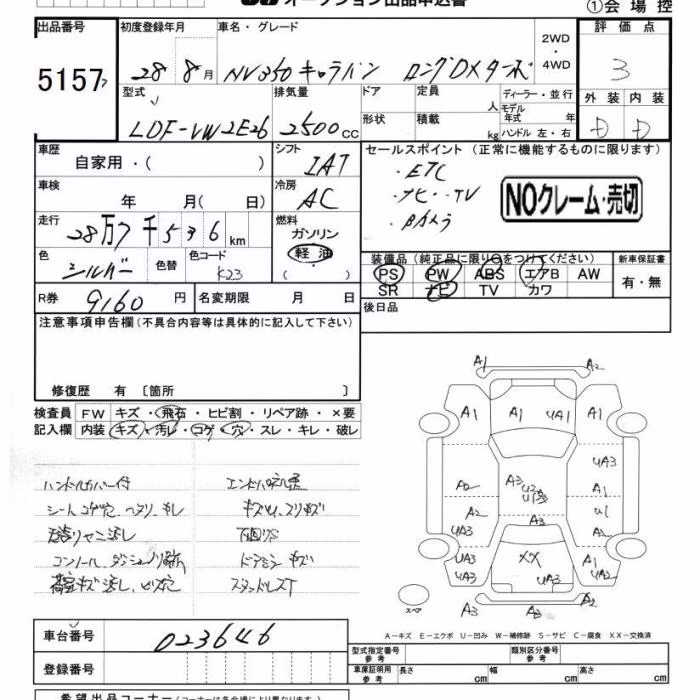 オークション出品申込書
①会場控
出品番号 初度登録年月 車名・グレード 2WD・4WD 評価点
5157 28年 8月 NV350キャラバン ロングDXターボ 3
型式 排気量 ドア 定員 人 ディーラー・並行 外装 内装
LDF-VW2E26 2500cc 形状 積載 kg モデル年式 年 ハンドル 左・右 D D
車歴 シフト セールスポイント (正常に機能するものに限ります)
自家用・( ) IAT ・ETC
車検 冷房 ・ナビ・TV
年 月( 日) AC ・Bカメラ
NOクレーム・売切
走行 燃料
28万7千536km ガソリン
軽油
( )
色 色替 色コード
シルバー K23
装備品(純正品に限り○をつけてください) 新車保証書
PS PW ABS エアB AW 有・無
SR ナビ TV カワ
R券 9160円 名変期限 月 日
後日品
注意事項申告欄(不具合内容等は具体的に記入して下さい)
修復歴 有 〔箇所 〕
検査員 FW キズ・飛石・ヒビ割・リペア跡・×要
記入欄 内装 キズ・汚レ・コゲ・穴・スレ・キレ・破レ
ハンドルカバー付
シートコゲ穴、ヘタリ、キレ
コンソール、ダッシュ
下回りサビ
ドアミラーキズ
スタッドレスT
A1 A2
A1 A1 UA1 A1
UA3
A3 A1
A2 U1
A2 A3
UA3 A2
UA3 XX A1
UA3 UA3 UA2
A3 A3 A2
スペア
A-キズ E-エクボ U-凹み W-補修跡 S-サビ C-腐食 XX-交換済
車台番号 023646
登録番号
型式指定番号 参考 類別区分番号 参考
車庫証明用 参考 長さ cm 幅 cm 高さ cm
希望出品コーナー(コーナーは各会場により異なります)